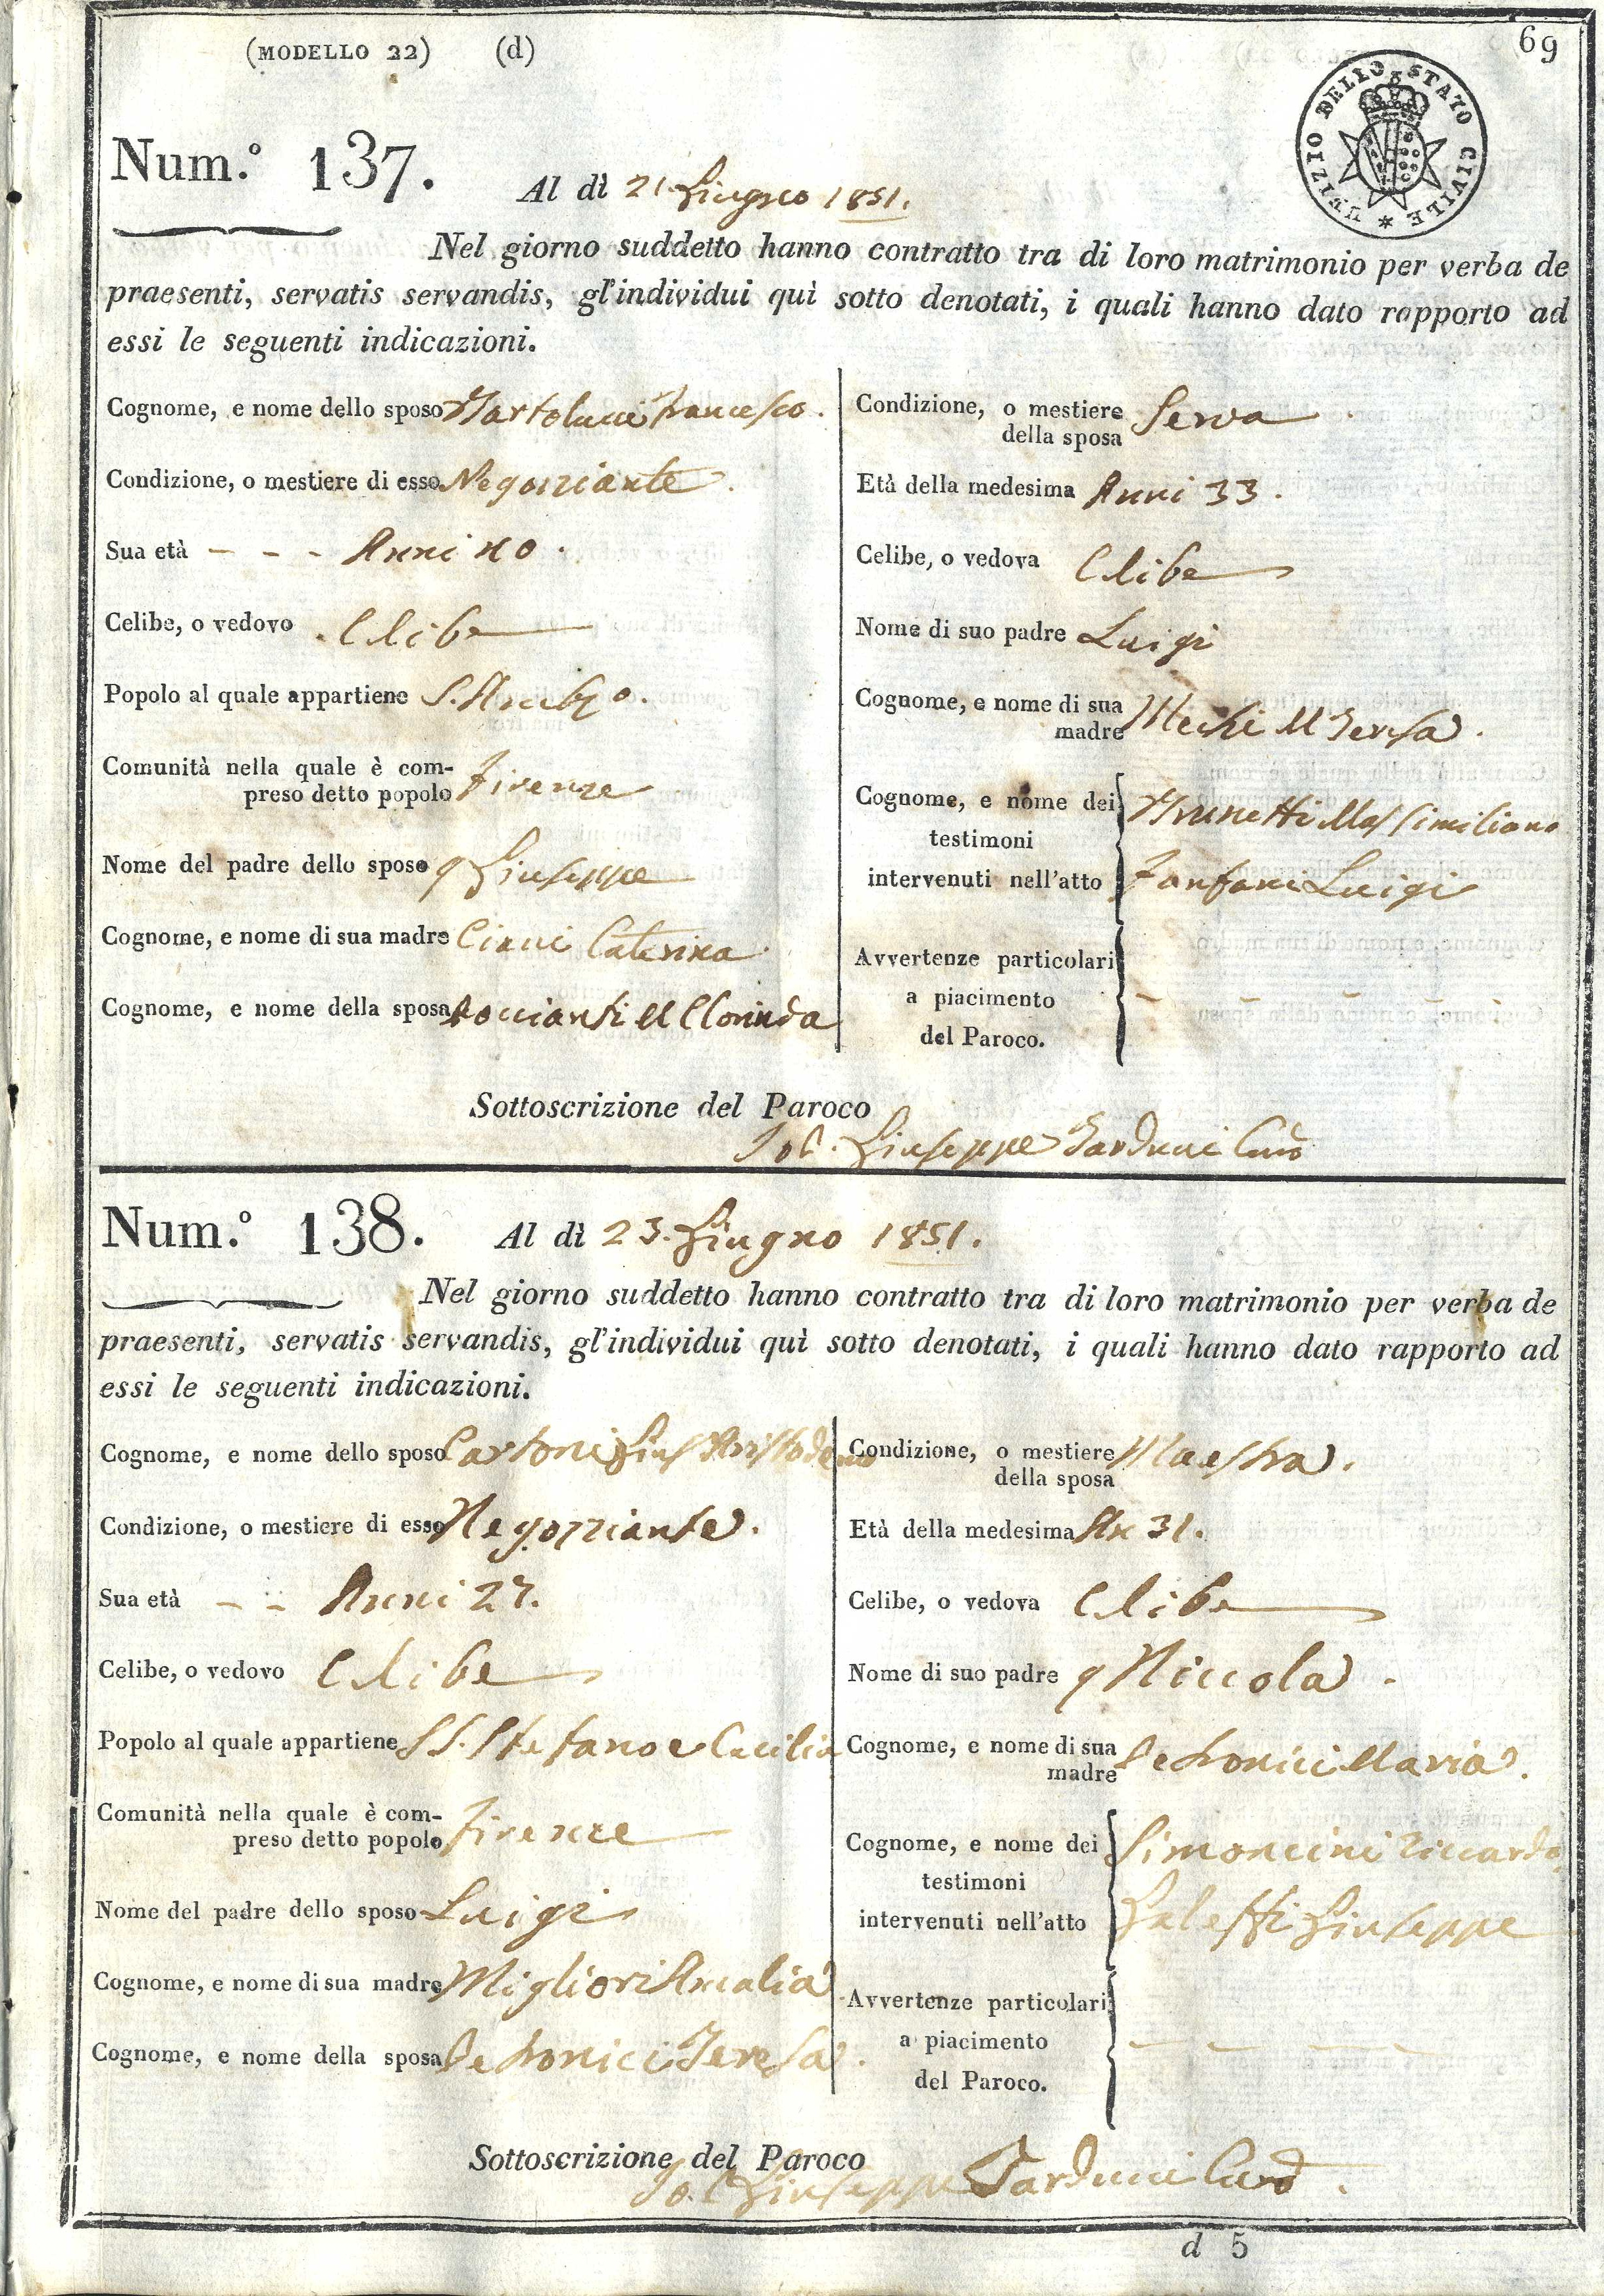 (MODELLO 22) (d)
69
UFIZIO DELLO STATO CIVILE
Num.º 137. Al dì 21. Giugno 1851.
Nel giorno suddetto hanno contratto tra di loro matrimonio per verba de
praesenti, servatis servandis, gl'individui quì sotto denotati, i quali hanno dato rapporto ad
essi le seguenti indicazioni.
Cognome, e nome dello sposo Bartolucci Francesco.
Condizione, o mestiere di esso Negoziante.
Sua età - - - Anni 40.
Celibe, o vedovo Celibe
Popolo al quale appartiene S. Ambº.
Comunità nella quale è com-
preso detto popolo Firenze
Nome del padre dello sposo q Giuseppe
Cognome, e nome di sua madre Cianci Caterina
Cognome, e nome della sposa Poccianti M Clorinda
Condizione, o mestiere
della sposa Serva
Età della medesima Anni 33.
Celibe, o vedova Celibe
Nome di suo padre Luigi
Cognome, e nome di sua
madre Mechi M Teresa.
Cognome, e nome dei Brunetti Massimiliano
testimoni
intervenuti nell'atto Fanfani Luigi
Avvertenze particolari
a piacimento - - - - -
del Paroco.
Sottoscrizione del Paroco
Giuseppe Tarducci Curº
Num.º 138. Al dì 23. Giugno 1851.
Nel giorno suddetto hanno contratto tra di loro matrimonio per verba de
praesenti, servatis servandis, gl'individui quì sotto denotati, i quali hanno dato rapporto ad
essi le seguenti indicazioni.
Cognome, e nome dello sposo Cartoni Gius Aristodemo
Condizione, o mestiere di esso Negozziante.
Sua età - - Anni 27.
Celibe, o vedovo Celibe
Popolo al quale appartiene SS. Stefano e Cecilia
Comunità nella quale è com-
preso detto popolo Firenze
Nome del padre dello sposo Luigi
Cognome, e nome di sua madre Migliori Amalia
Cognome, e nome della sposa Teresa.
Condizione, o mestiere
della sposa Maestra.
Età della medesima An 31.
Celibe, o vedova Celibe
Nome di suo padre q Niccola.
Cognome, e nome di sua
madre Maria.
Cognome, e nome dei Simoncini Riccardo
testimoni
intervenuti nell'atto Galeffi Giuseppe
Avvertenze particolari
a piacimento - - - -
del Paroco.
Sottoscrizione del Paroco
Giuseppe Tarducci Curº.
d 5